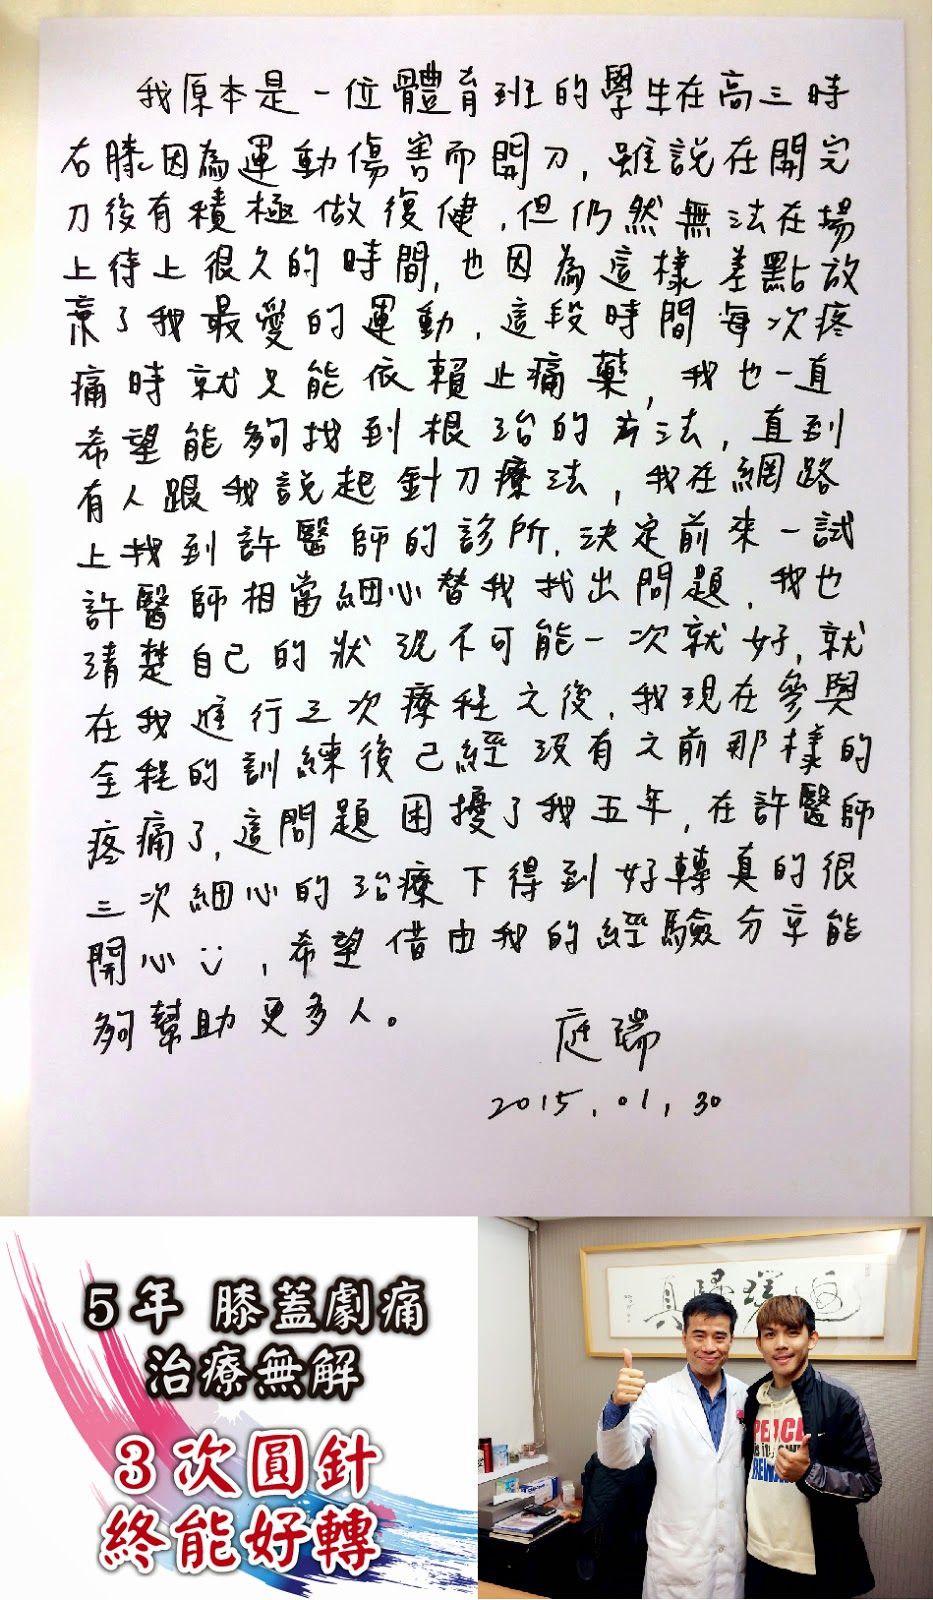 我原本是一位體育班的學生在高三時
右膝因為運動傷害而開刀,雖說在開完
刀後有積極做復健,但仍然無法在場
上待上很久的時間,也因為這樣差點放
棄了我最愛的運動,這段時間每次疼
痛時就只能依賴止痛藥,我也一直
希望能夠找到根治的方法,直到
有人跟我說起針刀療法,我在網路
上找到許醫師的診所,決定前來一試
許醫師相當細心替我找出問題,我也
清楚自己的狀況不可能一次就好,就
在我進行三次療程之後,我現在參與
全程的訓練後已經沒有之前那樣的
疼痛了,這問題困擾了我五年,在許醫師
三次細心的治療下得到好轉真的很
開心,希望借由我的經驗分享能
夠幫助更多人。
庭瑞
2015.01.30
5年 膝蓋劇痛
治療無解
3次圓針
終能好轉
真歸璞
PEACE